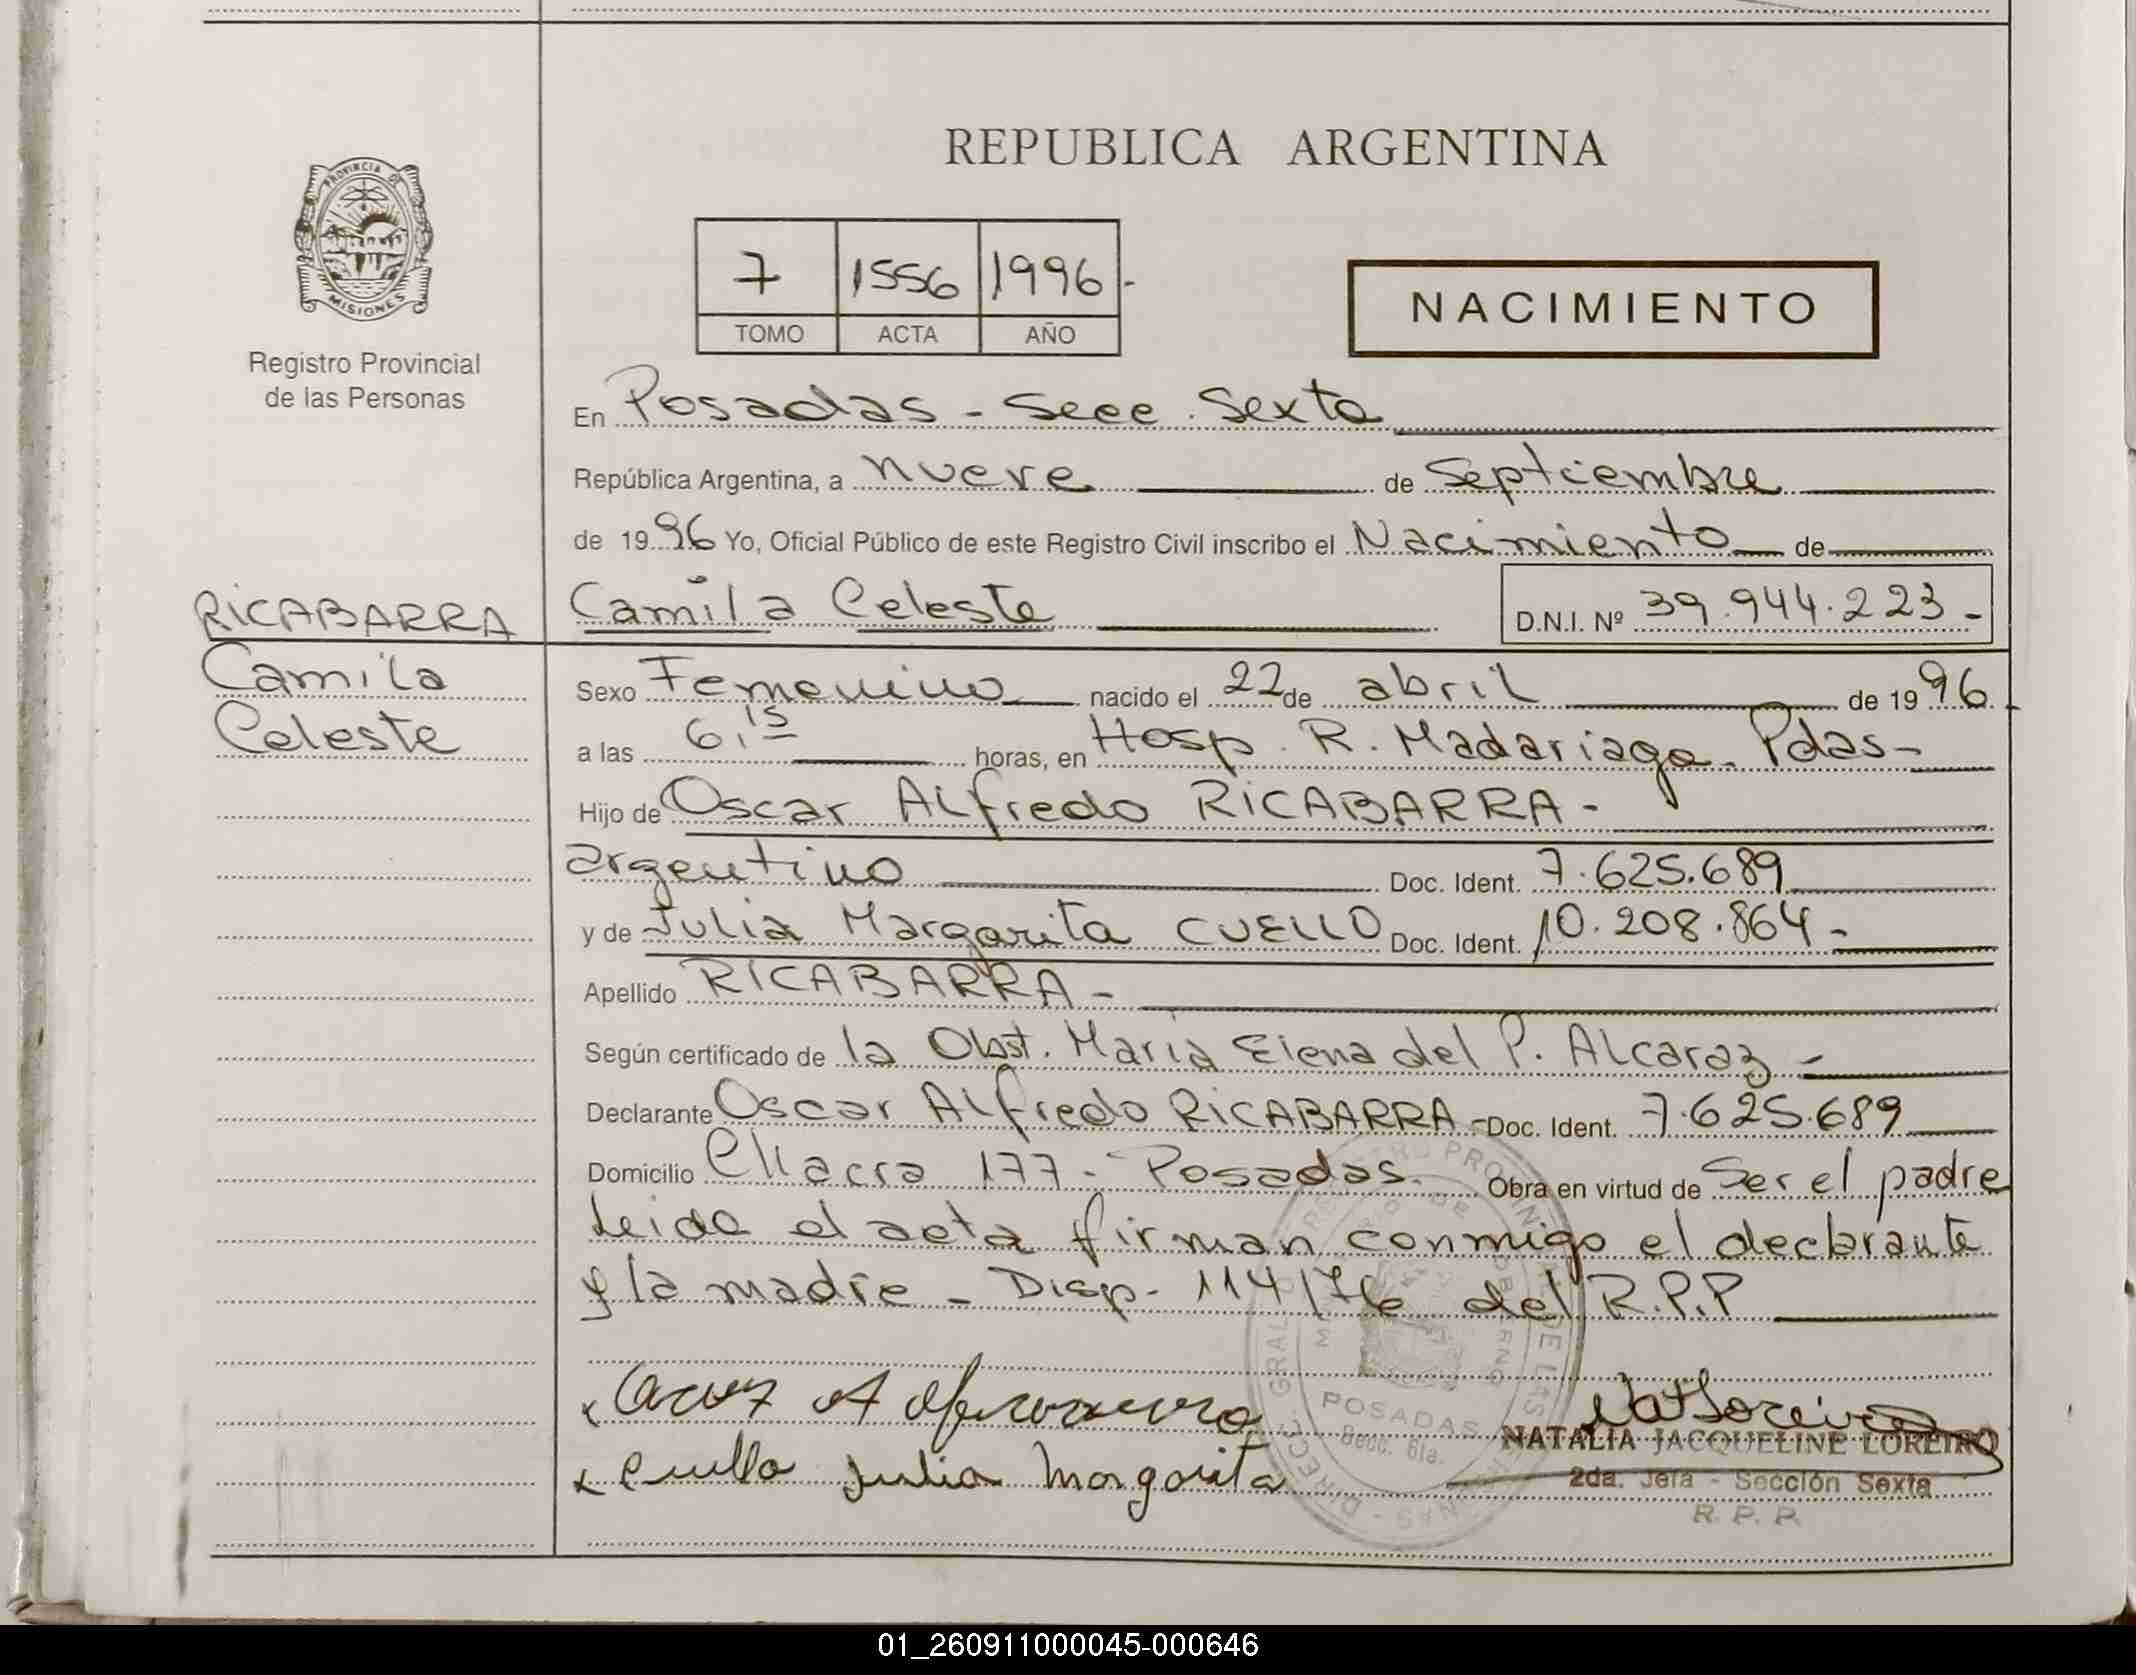 REPUBLICA ARGENTINA
PROVINCIA DE
MISIONES
Registro Provincial
de las Personas
7 1556 1996.-
TOMO ACTA AÑO
NACIMIENTO
En Posadas - Secc. Sexta
República Argentina, a nueve de Septiembre
de 1996 Yo, Oficial Público de este Registro Civil inscribo el Nacimiento de
RICABARRA
Camila Celeste D.N.I. Nº 39.944.223-
Camila
Celeste
Sexo Femenino nacido el 22 de abril de 1996.
a las 6,15 horas, en Hosp. R. Madariaga. Pdas-
Hijo de Oscar Alfredo RICABARRA-
argentino Doc. Ident. 7.625.689
y de Julia Margarita CUELLO Doc. Ident. 10.208.864-
Apellido RICABARRA-
Según certificado de la Obst. Maria Elena del P. Alcaraz-
Declarante Oscar Alfredo RICABARRA- Doc. Ident. 7.625.689
Domicilio Chacra 177- Posadas. Obra en virtud de Ser el padre
Leida el acta firman conmigo el declarante
y la madre - Disp. 114/76 del R.P.P
POSADAS
Secc. 6ta.
NATALIA JACQUELINE LOREIRO
x Cuello Julia Margarita
2da. Jefa - Sección Sexta
R. P. P.
01_260911000045-000646